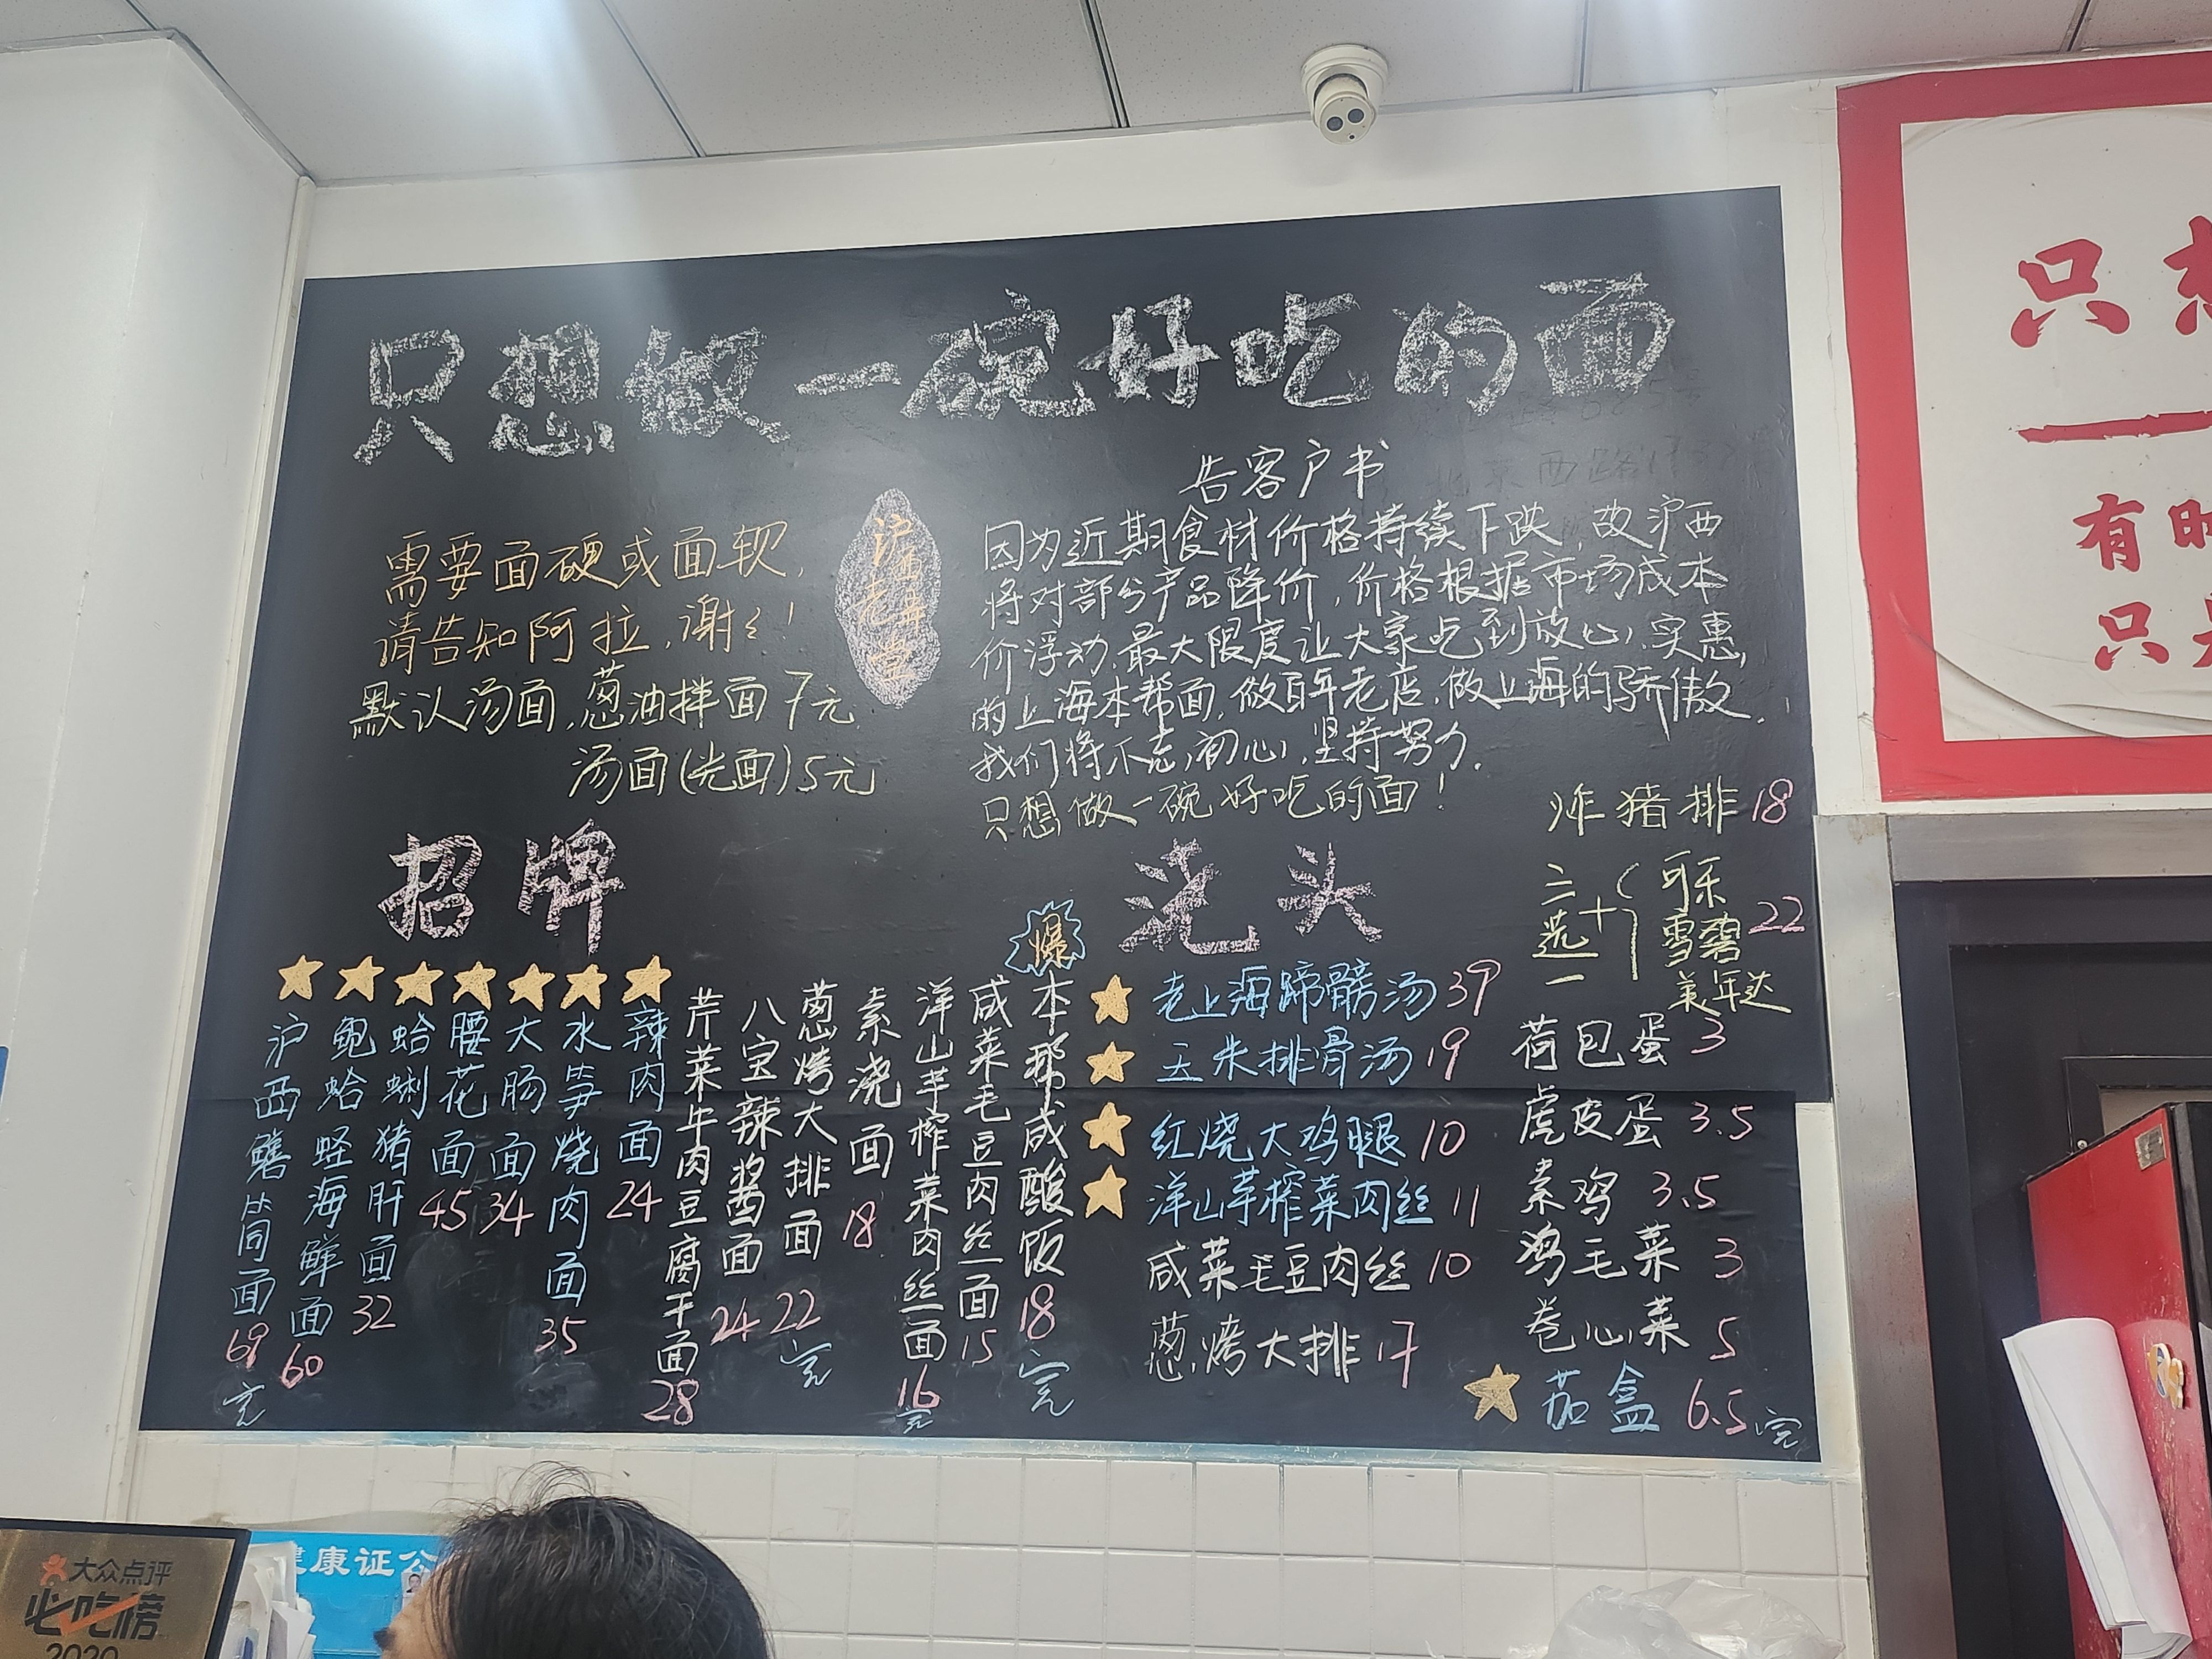 只想做一碗好吃的面
需要面硬或面软,
请告知阿拉,谢々!
默认汤面,葱油拌面7元
汤面(光面)5元
沪西老弄堂
告客户书
因为近期食材价格持续下跌,故沪西
将对部分产品降价,价格根据市场成本
价浮动.最大限度让大家吃到放心,实惠,
的上海本帮面,做百年老店,做上海的骄傲.
我们将不忘初心,坚持努力.
只想做一碗好吃的面!
招牌
沪西鳝筒面69元
鲍蛤蛏海鲜面60
蛤蜊猪肝面32
腰花面45
大肠面34
水笋烧肉面35
辣肉面24
芹菜牛肉豆腐干面28
八宝辣酱面24
葱烤大排面22元
素浇面18
洋山芋榨菜肉丝面16元
咸菜毛豆肉丝面15
爆
本帮咸酸饭18元
浇头
老上海蹄髈汤39
玉米排骨汤19
红烧大鸡腿10
洋山芋榨菜肉丝11
咸菜毛豆肉丝10
葱烤大排17
炸猪排18
二选一+
可乐
雪碧22
美年达
荷包蛋3
虎皮蛋3.5
素鸡3.5
鸡毛菜3
卷心菜5
茄盒6.5元
只想
一
有时
只
大众点评
必吃榜
2020
康证公